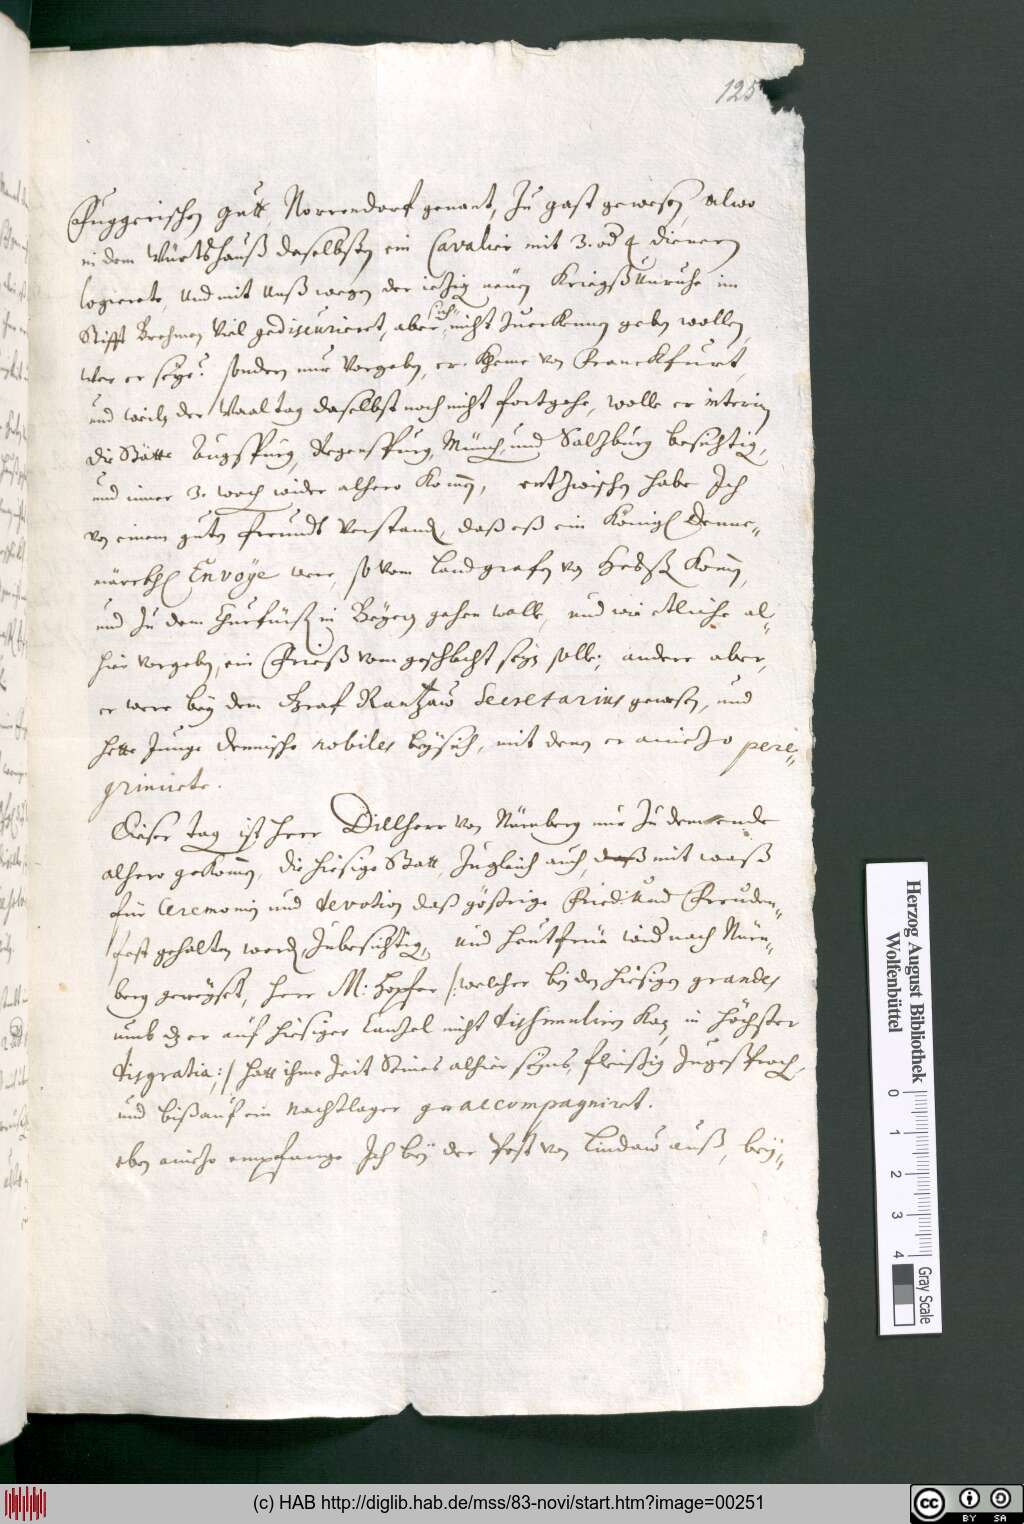 125
Fuggerischen Gutt, Norrendorf genant, zu gast gewesen, alwo
in dem Würtshauß daselbsten ein Cavalier mit 3. od 4 dienern
logierete, und mit unß wegen der ietzig neuen Kriegß Unruhe im
Stifft Brehmen viel gediscurieret, aber sich nicht zuerkennen geben wollen,
wer er seye? sondern nur vorgeben, er kheme von Franckfurt,
und weiln der Waaltag daselbst noch nicht fortgehe, wolle er interim
die Stätte Augspurg, Regenspurg, Münch, und Saltzburg besichtig,
und inner 3. woch wider alhero kommen, entzwischen habe Ich
von einem guten freundt verstanden, daß eß ein Königl Denne-
märckhl Envoye were, so vom Landgrafen von kom̃,
und zu dem Churfürst in Beyern gehen wolle, und wie etliche al-
hier vorgeben, ein Frieß vom geschlecht seyn solle, andere aber,
er were bey dem Graf Rantzaw Secretarius gewesen, und
hette Junge dennische nobiles bey sich, mit denen er aniezo pere-
grinirete.
Dieser tag ist Herr Dillherr von Nürnberg nur zu dem ende
alhero gekommen, die hiesige Statt, zugleich auch, daß mit waß
für Ceremonien und devotion daß göstrige Fried: Und Freuden-
fest gehalten werden, zubesichtig, und heut früe wider nach Nürn-
berg gereyset, Herr M: Hopfer /: welcher bey den hiesigen grandes
umb dz er auf hiesiger Cantzel nicht dissimuliren kan, in höchster
disgratia :/ hatt ihme Zeit Seines alhier seyns, fleissig zugesproch,
und biß auf ein Nachtlager gar accompagniret.
eben aniezo empfange Ich bey der Post von Lindaw auß, bey-
Herzog August Bibliothek
Wolfenbüttel
0 1 2 3 4
Gray Scale
(c) HAB http://diglib.hab.de/mss/83-novi/start.htm?image=00251
cc BY SA